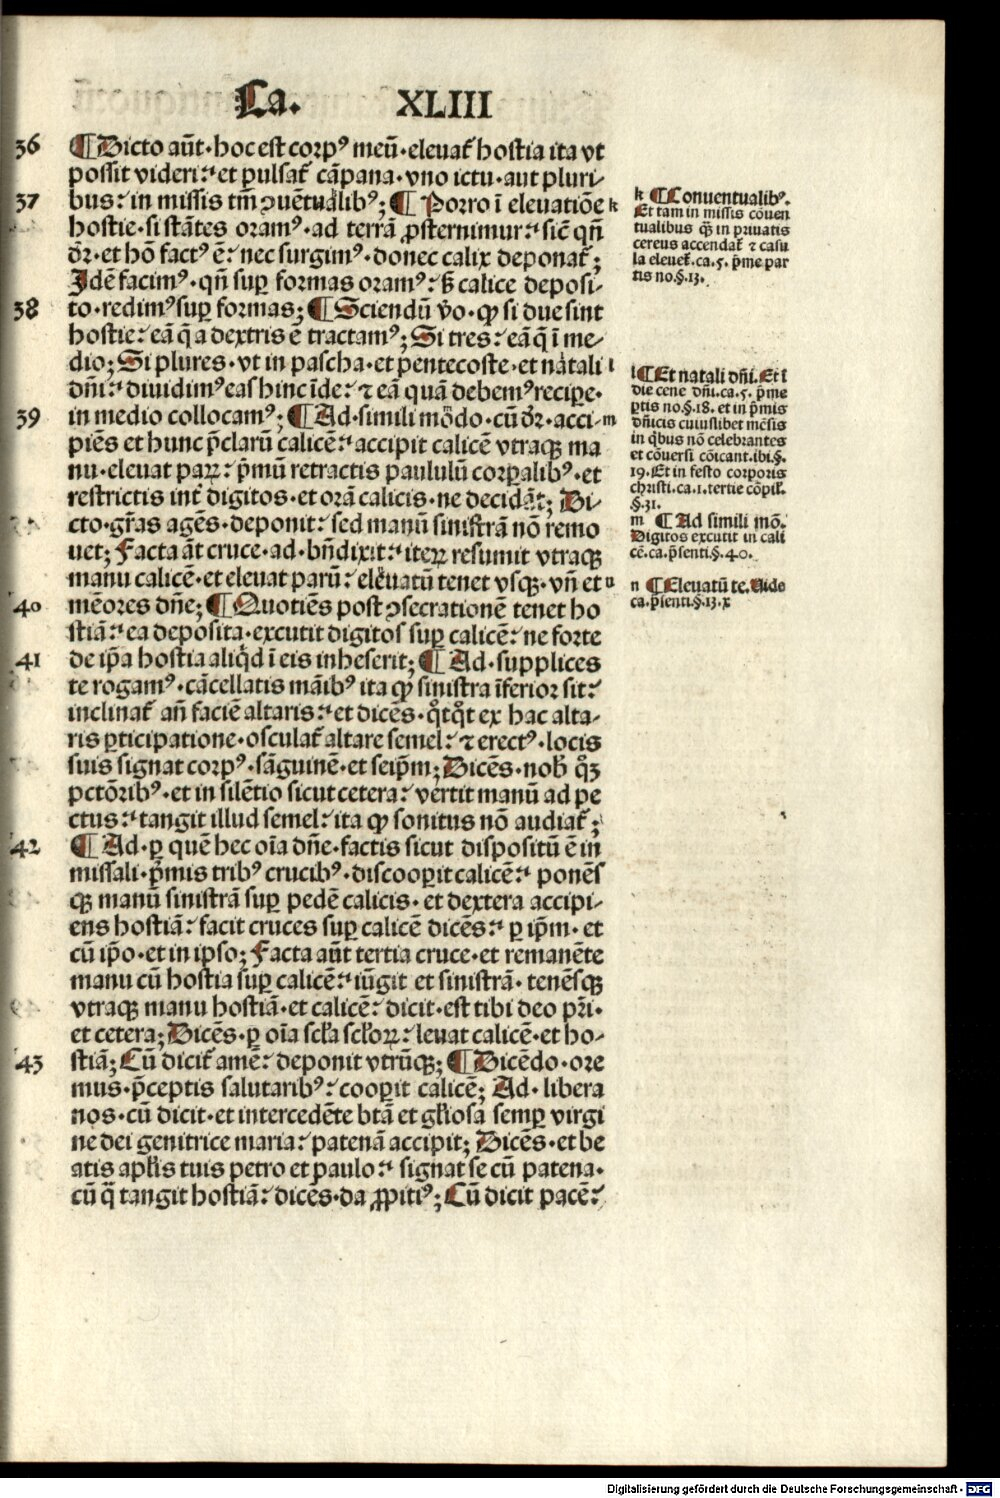 Ca. XLIII
36 ¶Dicto aūt·hoc est corpꝰ meū·eleuat᷑ hostia ita vt
possit videri:·et pulsat᷑ cāpana·vno ictu·aut pluri-
37 bus: in missis tm̄ ꝯuētualibꝰ; ¶Porro ī eleuatiōe k
hostie·si stātes oramꝰ·ad terrā ꝓsternimur:·sic̄ qn̄
dr̄·et hō factꝰ ē: nec surgimꝰ·donec calix deponat᷑;
Idē facimꝰ·qn̄ suꝑ formas oramꝰ: sꝫ calice deposi-
38 to·redimꝰ suꝑ formas; ¶Sciendū v̄o·ꝙ si due sint
hostie: eā q̄ a dextris ē tractamꝰ; Si tres: eā q̄ ī me-
dio; Si plures·vt in pascha·et pentecoste·et natali l
dn̄i:·diuidimꝰ eas hinc īde: ⁊ eā quā debemꝰ recipe-
39 in medio collocamꝰ; ¶Ad·simili mōdo·cū dr̄·acci- m
piēs et hunc p̄clarū calicē:·accipit calicē vtraqꝫ ma
nu·eleuat paꝝ: p̄mū retractis paululū corꝑalibꝰ·et
restrictis int᷑ digitos·et orā calicis·ne decidāt; Di-
cto·gr̄as agēs·deponit: sed manū sinistrā nō remo
uet; Facta āt cruce·ad·bn̄dixit:·iteꝝ resumit vtraqꝫ
manu calicē·et eleuat parū: eleuatū tenet vsqꝫ·vn̄ et n
40 mēores dn̄e; ¶Quotiēs post ꝯsecrationē tenet ho
stiā:·ea deposita·excutit digitos suꝑ calicē: ne forte
41 de ip̄a hostia aliqd̄ ī eis inheserit; ¶Ad·supplices
te rogamꝰ·cācellatis māibꝰ ita ꝙ sinistra īferior sit:
inclinat᷑ an̄ faciē altaris:·et dicēs·qͦtqͦt ex hac alta-
ris ꝑticipatione·osculat᷑ altare semel: ⁊ erectꝰ·locis
suis signat corpꝰ·sāguinē·et seip̄m; Dicēs·nob̄ qͦꝫ
pctōribꝰ·et in silētio sicut cetera: vertit manū ad pe
ctus:·tangit illud semel: ita ꝙ sonitus nō audiat᷑;
42 ¶Ad·ꝑ quē hec oīa dn̄e·factis sicut dispositū ē in
missali·p̄mis tribꝰ crucibꝰ·discooꝑit calicē:·ponēs
qꝫ manū sinistrā suꝑ pedē calicis·et dextera accipi-
ens hostiā: facit cruces suꝑ calicē dicēs:·ꝑ ip̄m·et
cū ip̄o·et in ipso; Facta aūt tertia cruce·et remanēte
manu cū hostia suꝑ calicē:·iūgit et sinistrā·tenēsqꝫ
vtraqꝫ manu hostiā·et calicē: dicit·est tibi deo pr̄i·
et cetera; Dicēs·ꝑ oīa scl̄a scl̄oꝝ: leuat calicē·et ho-
43 stiā; Cū dicit᷑ amē: deponit vtrūqꝫ; ¶Dicēdo·ore
mus·p̄ceptis salutaribꝰ: cooꝑit calicē; Ad·libera
nos·cū dicit·et intercedēte btā et gl̄iosa semꝑ virgi
ne dei genitrice maria: patenā accipit; Dicēs·et be
atis apl̄is tuis petro et paulo:·signat se cū patena·
cū q̄ tangit hostiā: dicēs·da ꝓpitiꝰ; Cū dicit pacē:
k ¶Conuentualibꝰ.
Et tam in missis cōuen
tualibus qꝫ in priuatis
cereus accendat᷑ ⁊ casu
la eleuet᷑.ca.5. p̄me par
tis no.§.13.
l ¶Et natali dn̄i. Et ī
die cene dn̄i.ca.5. p̄me
ꝑtis no.§.18. et in p̄mis
dn̄icis cuiuslibet mēsis
in qͥbus nō celebrantes
et cōuersi cōicant.ibi.§.
19. Et in festo corporis
christi.ca.1. tertie cōpil᷑.
§.31.
m ¶Ad simili mō.
Digitos excutit in cali
cē.ca.p̄senti.§.40.
n ¶Eleuatū te. Vide
ca.p̄senti.§.13.x
Digitalisierung gefördert durch die Deutsche Forschungsgemeinschaft - DFG